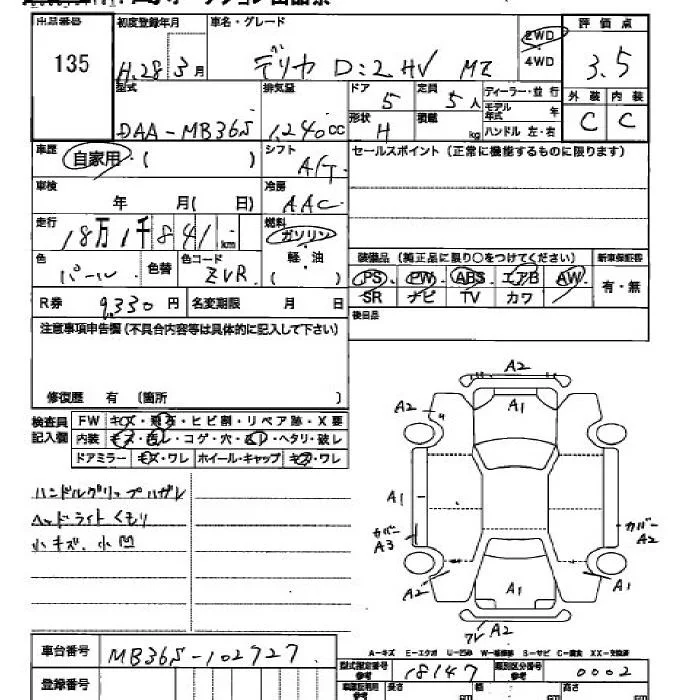 出品番号 初度登録年月 車名・グレード 2WD 評価点
135 H.28 3月 デリカ D:2 HV MZ 4WD 3.5
型式 排気量 ドア 定員 ディーラー・並行 外装 内装
5 5人 モデル年式 年 C C
DAA-MB36S 1,240cc 形状 H 積載 kg ハンドル 左・右
車歴 自家用・( ) シフト A/T セールスポイント(正常に機能するものに限ります)
車検 年 月( 日) 冷房 AAC
走行 18万1千841km 燃料 ガソリン
軽・油 装備品(純正品に限り○をつけてください) 新車保証書
色 パール 色替 色コード ZVR ( ) PS・PW・ABS・エアB・AW 有・無
SR ナビ TV カワ
R券 9,330円 名変期限 月 日 後日品
注意事項申告欄(不具合内容等は具体的に記入して下さい)
修復歴 有 (箇所 )
検査員記入欄 FW キズ・飛石・ヒビ割・リペア跡・X要
内装 キズ・・コゲ・穴・・ヘタリ・破レ
ドアミラー キズ・ワレ ホイール・キャップ キズ・ワレ
ハンドルグリップハガレ
ヘッドライトくもり
小キズ、小凹
A2
A2 A1
A1
カバー A3 カバー A2
A2 A1 A1
ワレ A2
A-キズ E-エクボ U-凹み W-補修跡 S-サビ C-腐食 XX-交換済
車台番号 MB36S-102727 型式指定番号 18147 類別区分番号 0002
登録番号 長さ cm 幅 cm 高さ cm